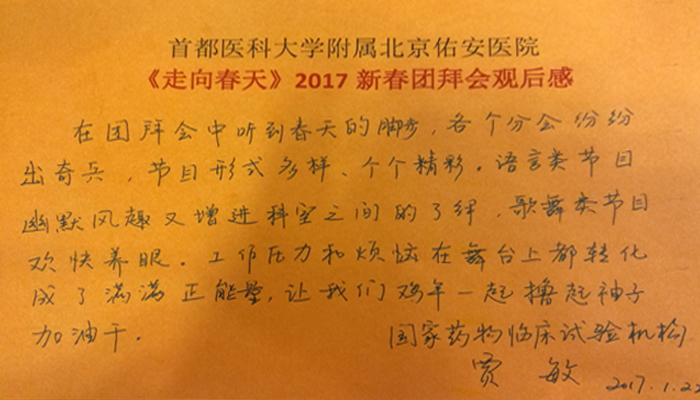 首都医科大学附属北京佑安医院
《走向春天》2017 新春团拜会观后感
在团拜会中听到春天的脚步，各个分会纷纷
出奇兵，节目形式多样、个个精彩。语言类节目
幽默风趣又增进科室之间的了绊，歌舞类节目
欢快养眼。工作压力和烦恼在舞台上都转化
成了满满正能量，让我们鸡年一起撸起袖子
加油干。
国家药物临床试验机构
贾敏 2017.1.22